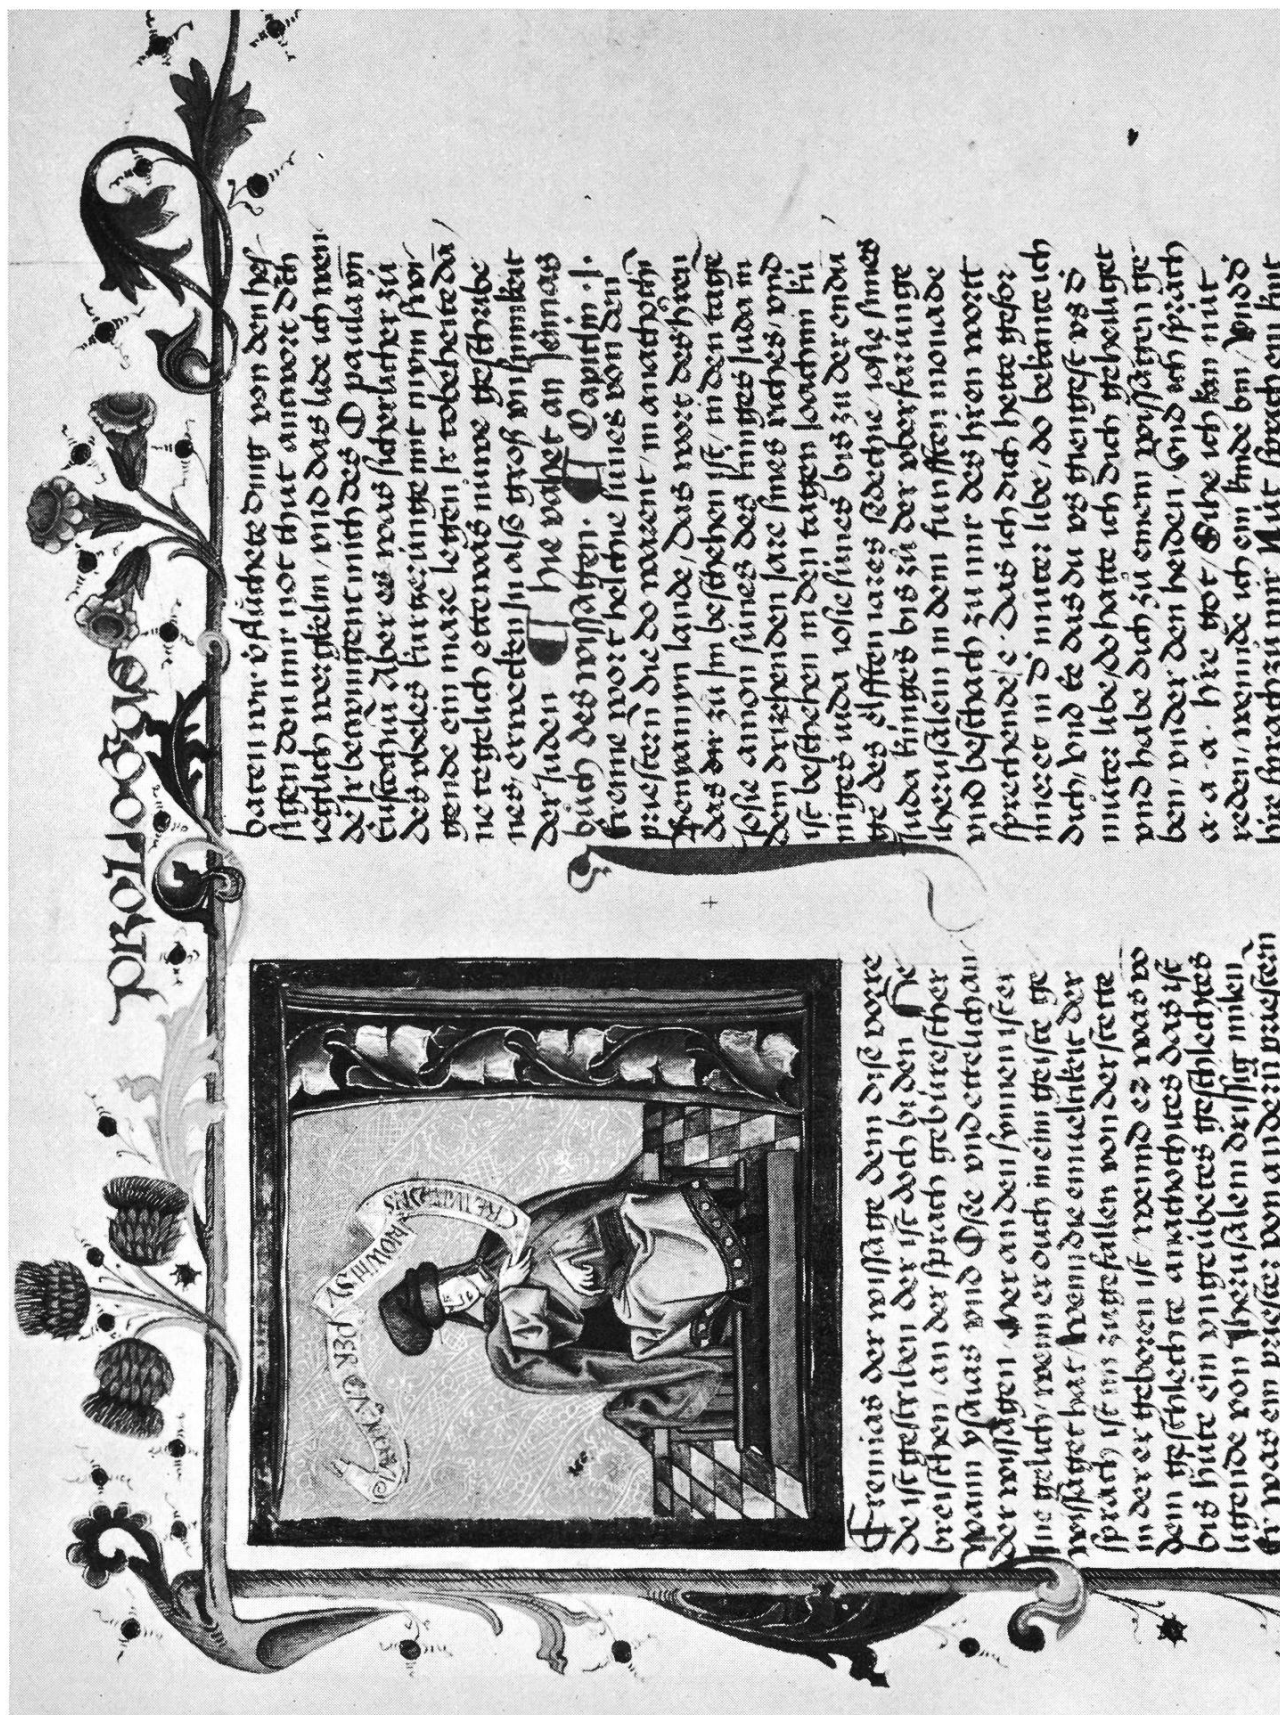 PROLOGUS
Jeremias der wissage dem dise vorre
de ist geschriben der ist doch bi den he
breischen / an der sprach gebürescher
wann ysaias vnd Osee vnd ettelich an
der wissagen Aber an den sinnen ist er
Ine gelich / wenn er ouch in eim geiste ge
wissaget hat / wenn die einueltikeit der
sprach ist im zugefallen von der stette
in der er geboren ist / wennd er was vo
dem geschlechte anathothites das ist
bis hüte ein geschlechtes
ligende von Jherusalem drissig milen
Er was ein priester von andern priestern
baten wir ding von dem hes
sigen den mir not thut antwort
ieglich / vnd das lide ich wen
mich des O paula vn
Aber es was sicherlicher zů
des vbeles mit mym swi
gende ein maze legen Ir tobeheite dā
ne tegelich ettewas nuwe geschribe
nes / erwecken In alß groß winsinikeit
der Juden hie vahet an Jeremias
bůch des wissagen Capitlm .I.
wort helchie sunes von den
priestern die do warent / in anathoth
lande / Das wort des hren
das dir zů Im beschehen ist / in den tage
Josie amon sunes des kunges Juda in
dem drizehenden Jare sines riches / vnd
ist beschehen in den tagen Joachim kü
niges iuda iosie sunes bis zu der endu
ge des eilfften iares sedechie iosie sunes
Juda kunges bis zu der vberfarunge
Jherusalem in dem funfften monade
vnd beschach zu mir des hren wortt
sprechende / e das ich dich hette gefor
mieret in d' muter libe / do bekante ich
dich / vnd ee das du vs giengest vs d'
můter libe / do hatte ich dich geheiliget
vnd habe dich zů einem wissagen ge
ben / vnder den heiden / vnd ich sprach
a · a · a · hire got / Sihe ich kan nüt
reden / wennde ich ein kinde bin /
hire sprach zů mir Nüt sprach ein kint